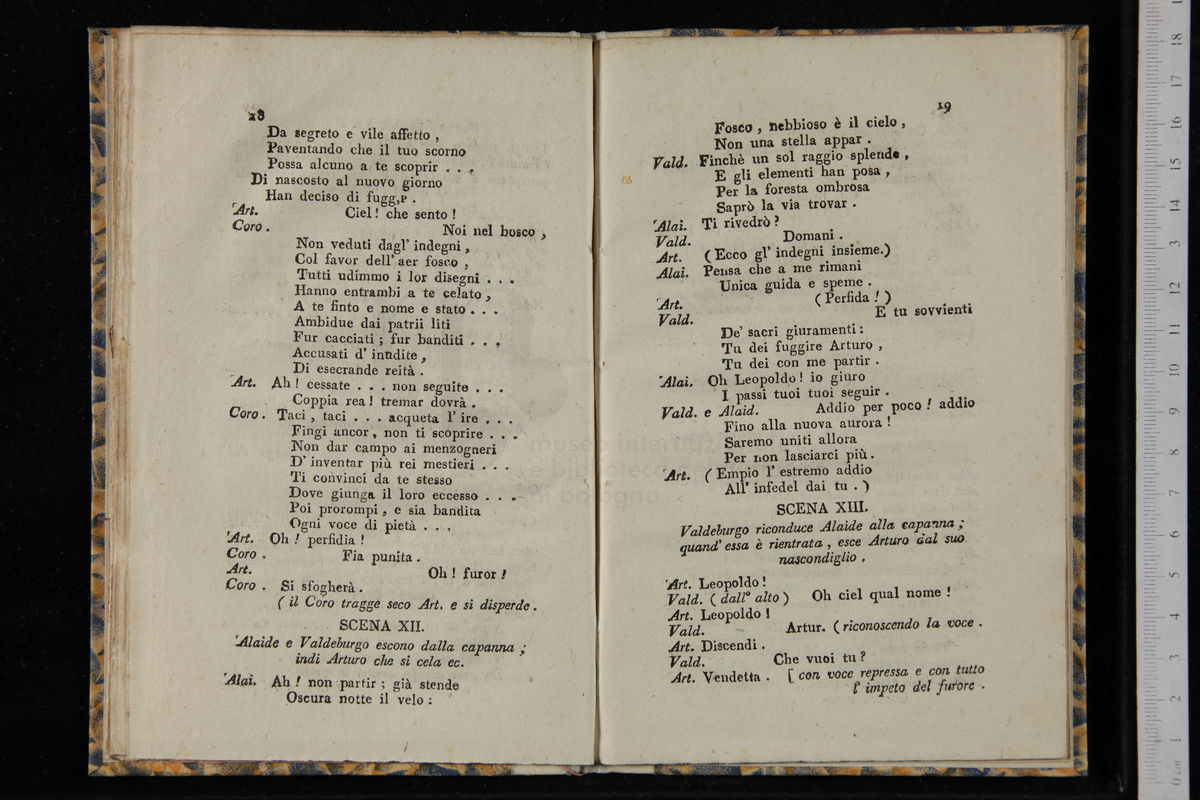 28
Da segreto e vile affetto ,
Paventando che il tuo scorno
Possa alcuno a te scoprir . . .
Di nascosto al nuovo giorno
Han deciso di fugg,p .
Art. Ciel! che sento !
Coro . Noi nel bosco ,
Non veduti dagl' indegni ,
Col favor dell' aer fosco ,
Tutti udimmo i lor disegni . . .
Hanno entrambi a te celato ,
A te finto e nome e stato . . .
Ambidue dai patrii liti
Fur cacciati ; fur banditi . . .
Accusati d' inudite ,
Di esecrande reità .
Art. Ah ! cessate . . . non seguite . . .
Coppia rea ! tremar dovrà .
Coro . Taci , taci . . . acqueta l' ire . . .
Fingi ancor , non ti scoprire . . .
Non dar campo ai menzogneri
D' inventar più rei mestieri . . .
Ti convinci da te stesso
Dove giunga il loro eccesso . . .
Poi prorompi , e sia bandita
Ogni voce di pietà . . .
Art. Oh ! perfidia !
Coro . Fia punita .
Art. Oh ! furor !
Coro . Si sfogherà .
( il Coro tragge seco Art. e si disperde .
SCENA XII.
Alaide e Valdeburgo escono dalla capanna ;
indi Arturo che si cela ec.
Alai. Ah ! non partir ; già stende
Oscura notte il velo :
19
Fosco , nebbioso è il cielo ,
Non una stella appar .
Vald. Finchè un sol raggio splende ,
E gli elementi han posa ,
Per la foresta ombrosa
Saprò la via trovar .
Alai. Ti rivedrò ?
Vald. Domani .
Art. ( Ecco gl' indegni insieme.)
Alai. Pensa che a me rimani
Unica guida e speme .
Art. ( Perfida ! )
Vald. E tu sovvienti
De' sacri giuramenti :
Tu dei fuggire Arturo ,
Tu dei con me partir .
Alai. Oh Leopoldo ! io giuro
I passi tuoi tuoi seguir .
Vald. e Alaid. Addio per poco ! addio
Fino alla nuova aurora !
Saremo uniti allora
Per non lasciarci più .
Art. ( Empio l' estremo addio
All' infedel dai tu . )
SCENA XIII.
Valdeburgo riconduce Alaide alla capanna ;
quand' essa è rientrata , esce Arturo dal suo
nascondiglio .
Art. Leopoldo !
Vald. ( dall' alto ) Oh ciel qual nome !
Art. Leopoldo !
Vald. Artur. ( riconoscendo la voce .
Art. Discendi .
Vald. Che vuoi tu ?
Art. Vendetta . [ con voce repressa e con tutto
l' impeto del furore .
museo internaz
e biblioteca
di bologna
0 cm 1 2 3 4 5 6 7 8 9 10 11 12 13 14 15 16 17 18